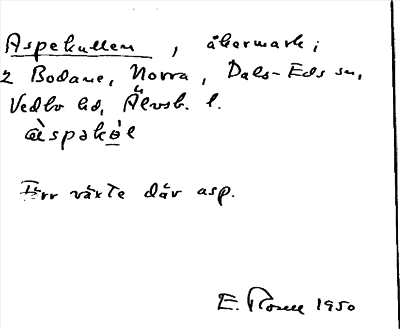 Aspekullen, åkermark i
2 Bodane, Norra, Dals-Eds sn,
Vedbo hd, Älvsb. l.
àspəkòl
Förr växte där asp.
E. 1950